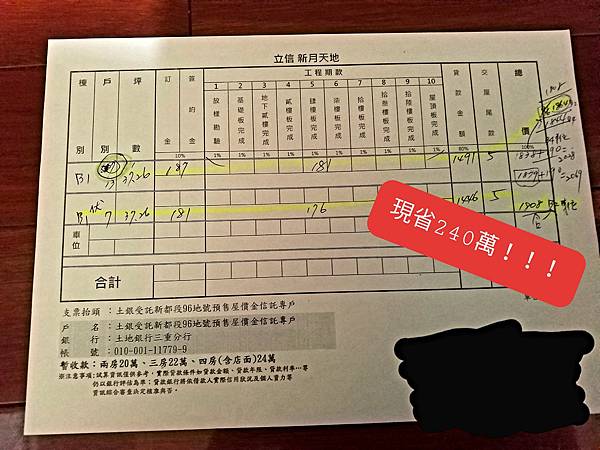 立信 新月天地
棟別 戶別 坪數 訂金 簽約金 工程期款 貸款金額 交屋尾款 總價
1 2 3 4 5 6 7 8 9 10
放樣勘驗 基礎板完成 地下貳樓板完成 貳樓板完成 肆樓板完成 柒樓板完成 拾樓板完成 拾叁樓板完成 拾陸樓板完成 屋頂板完成
10% 1% 1% 1% 1% 1% 1% 1% 1% 1% 1% 80%
B1 13 37.26 187 181 1491 5
B1 7 37.26 181 176 1446 5 1808
車位
合計
現省240萬!!!
支票抬頭:土銀受託新都段96地號預售屋價金信託專戶
戶名:土銀受託新都段96地號預售屋價金信託專戶
銀行:土地銀行三重分行
帳號:010-001-11779-9
暫收款:兩房20萬、三房22萬、四房(含店面)24萬
※注意事項:試算資訊僅供參考,實際貸款條件如貸款金額、貸款年限、貸款利率…等
仍以銀行評估為準;貸款銀行將依借款人實際信用狀況及個人資力等
資訊綜合審查決定核准與否。